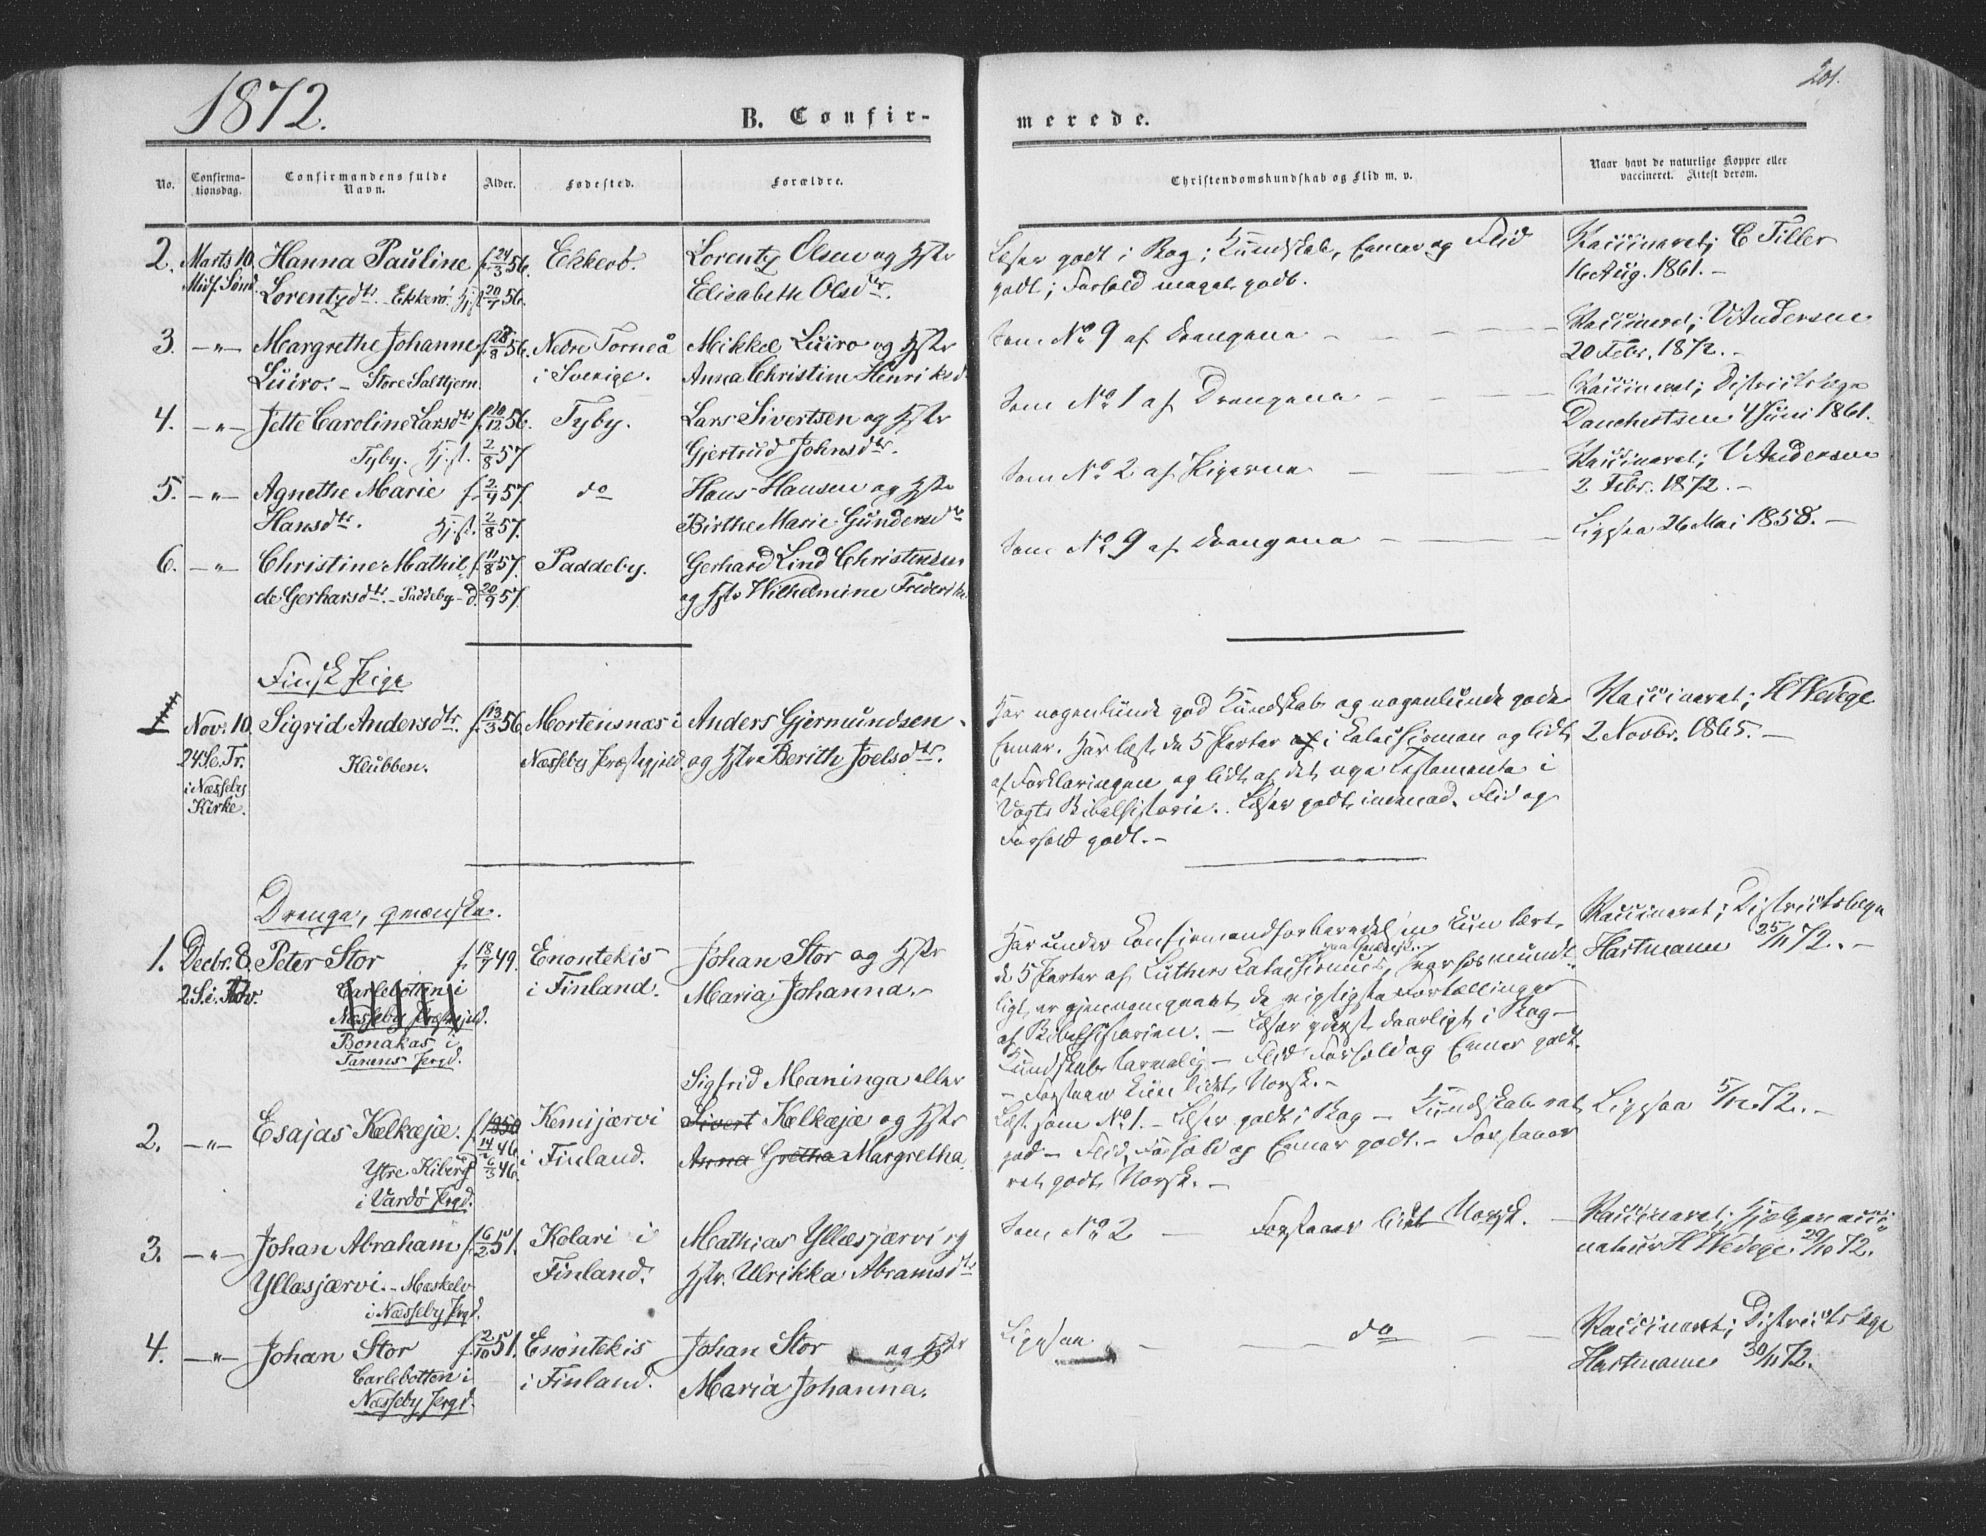 1872.
201.
B. Confir-
merede.
No.
Confirma-
tionsdag.
Confirmandens fulde
Navn.
Alder.
Fødested.
Forældre.
Christendomskundskab og Flid m. v.
Naar havt de naturlige Kopper eller
vaccineret. Attest derom.
2. Marts 10. Hanna Pauline f. 24/3 56. Ekkerö. Lorentz Olsen og Hstr
Midf. Sönd. Lorentzdtr. Ekkerö. Hj. 20/4 56. Elisabeth Olsdtr.
Læser godt i Bog; Kundskab, Evner og Flid
godt; Forhold meget godt.
Vaccineret; C Tiller
16 Aug. 1861. -
3. -"- Margrethe Johanne f. 28/8 56. Nedre Torneå Mikkel Luiro og Hstr
Luiro. - Store Saltjern. i Sverige. Anna Christine Henriksd.
Som No 9 af Drengene -
Vaccineret; V Andersen
20 Febr. 1872. -
4. -"- Jette Caroline Larsdtr f. 10/12 56. Tyby. Lars Sivertsen og Hstr
Tyby. Hj. 2/8 57. Gjertrud Johnsdtr.
Som No 1 af Drengene -
Vaccineret; Districtslæge
Danchertsen 4 Juni 1861.
5. -"- Agnethe Marie f. 2/4 57. do Hans Hansen og Hstr
Hansdtr. Hj. 2/8 57. Birthe Marie Gundersdtr
Som No 2 af Pigerne -
Vaccineret; V Andersen
2 Febr. 1872. -
6. -"- Christine Mathil f. 11/8 57. Paddeby. Gerhard Lind Christensen
de Gerharsdtr. - Paddeby - d. 20/9 57. og Hstr Wilhelmine Frederikke
Som No 9 af Drengene -
Ligesaa 26 Mai 1858. -
Finsk Pige
1 Nov. 10. Sigrid Andersdtr. f. 13/3 56. Mortensnæs i Anders Gjermundsen
24 S. e. Tr. Klubben. Næsseby Præstegjeld og Hstr Berith Joelsdtr.
i Næsseby
Kirke.
Har nogenlunde god Kundskab og nogenlunde gode
Evner. Har læst de 5 Parter af i Katechismen og lidt
af Forklaringen og lidt af det nye Testamente i
Vogts Bibelhistorie. Læser godt indenad. Flid og
Forhold godt. -
Vaccineret; H Wedege
2 Novbr. 1865. -
Drenge, qvænske.
1. Decbr. 8. Peter Stor f. 18/7 49. Enontekis Johan Stor og Hstr
2 S. i. Adv. Carlebotten i i Finland. Maria Johanna. -
Næsseby Præstegjeld.
Bonakas i
Tanens Prgd.
Har under Konfirmandforberedelsen kun lært
de 5 Parter af Luthers Katechismus,
ligt er gjennemgaaet de vigtigste Fortællinger
af Bibelhistorien. - Læser yderst daarligt i Bog -
Kundskab tarvelig - Flid Forhold og Evner godt.
- Forstaar kun lidt Norsk. -
Vaccineret; Districtslæge
Hartmann 25/11 72. -
Sigfrid Maninga eller
2. -"- Esajas Kelkæjæ. f. 1850 Kemijærvi Sivert Kelkæjæ og Hstr
Ytre Kiberg 14/ 46. i Finland. Anna Gretha Margretha.
i Vardö Prgd. /3 46.
Læst som No 1. - Læser godt i Bog - Kundskab ret
god - Flid, Forhold og Evner godt. - Forstaaer
ret godt Norsk. -
Ligesaa 5/12 72. -
3. -"- Johan Abraham f. 6/2 51. Kolari i Mathias Yllæsjærvi og
Yllæsjærvi. - Mæskelv Finland. Hstr. Ulrikka Abramsdtr
i Næsseby Prgd.
Som No 2 - Forstaaer lidt Norsk. -
Vaccineret; Hjælpevacci-
nateur H Wedege 29/10 72.
4. -"- Johan Stor f. 2/10 51. Enontekis Johan Stor og Hstr
Carlebotten i i Finland. Maria Johanna.
Næsseby Prgd.
Ligesaa - do -
Vaccineret; Districtslæge
Hartmann 30/11 72.